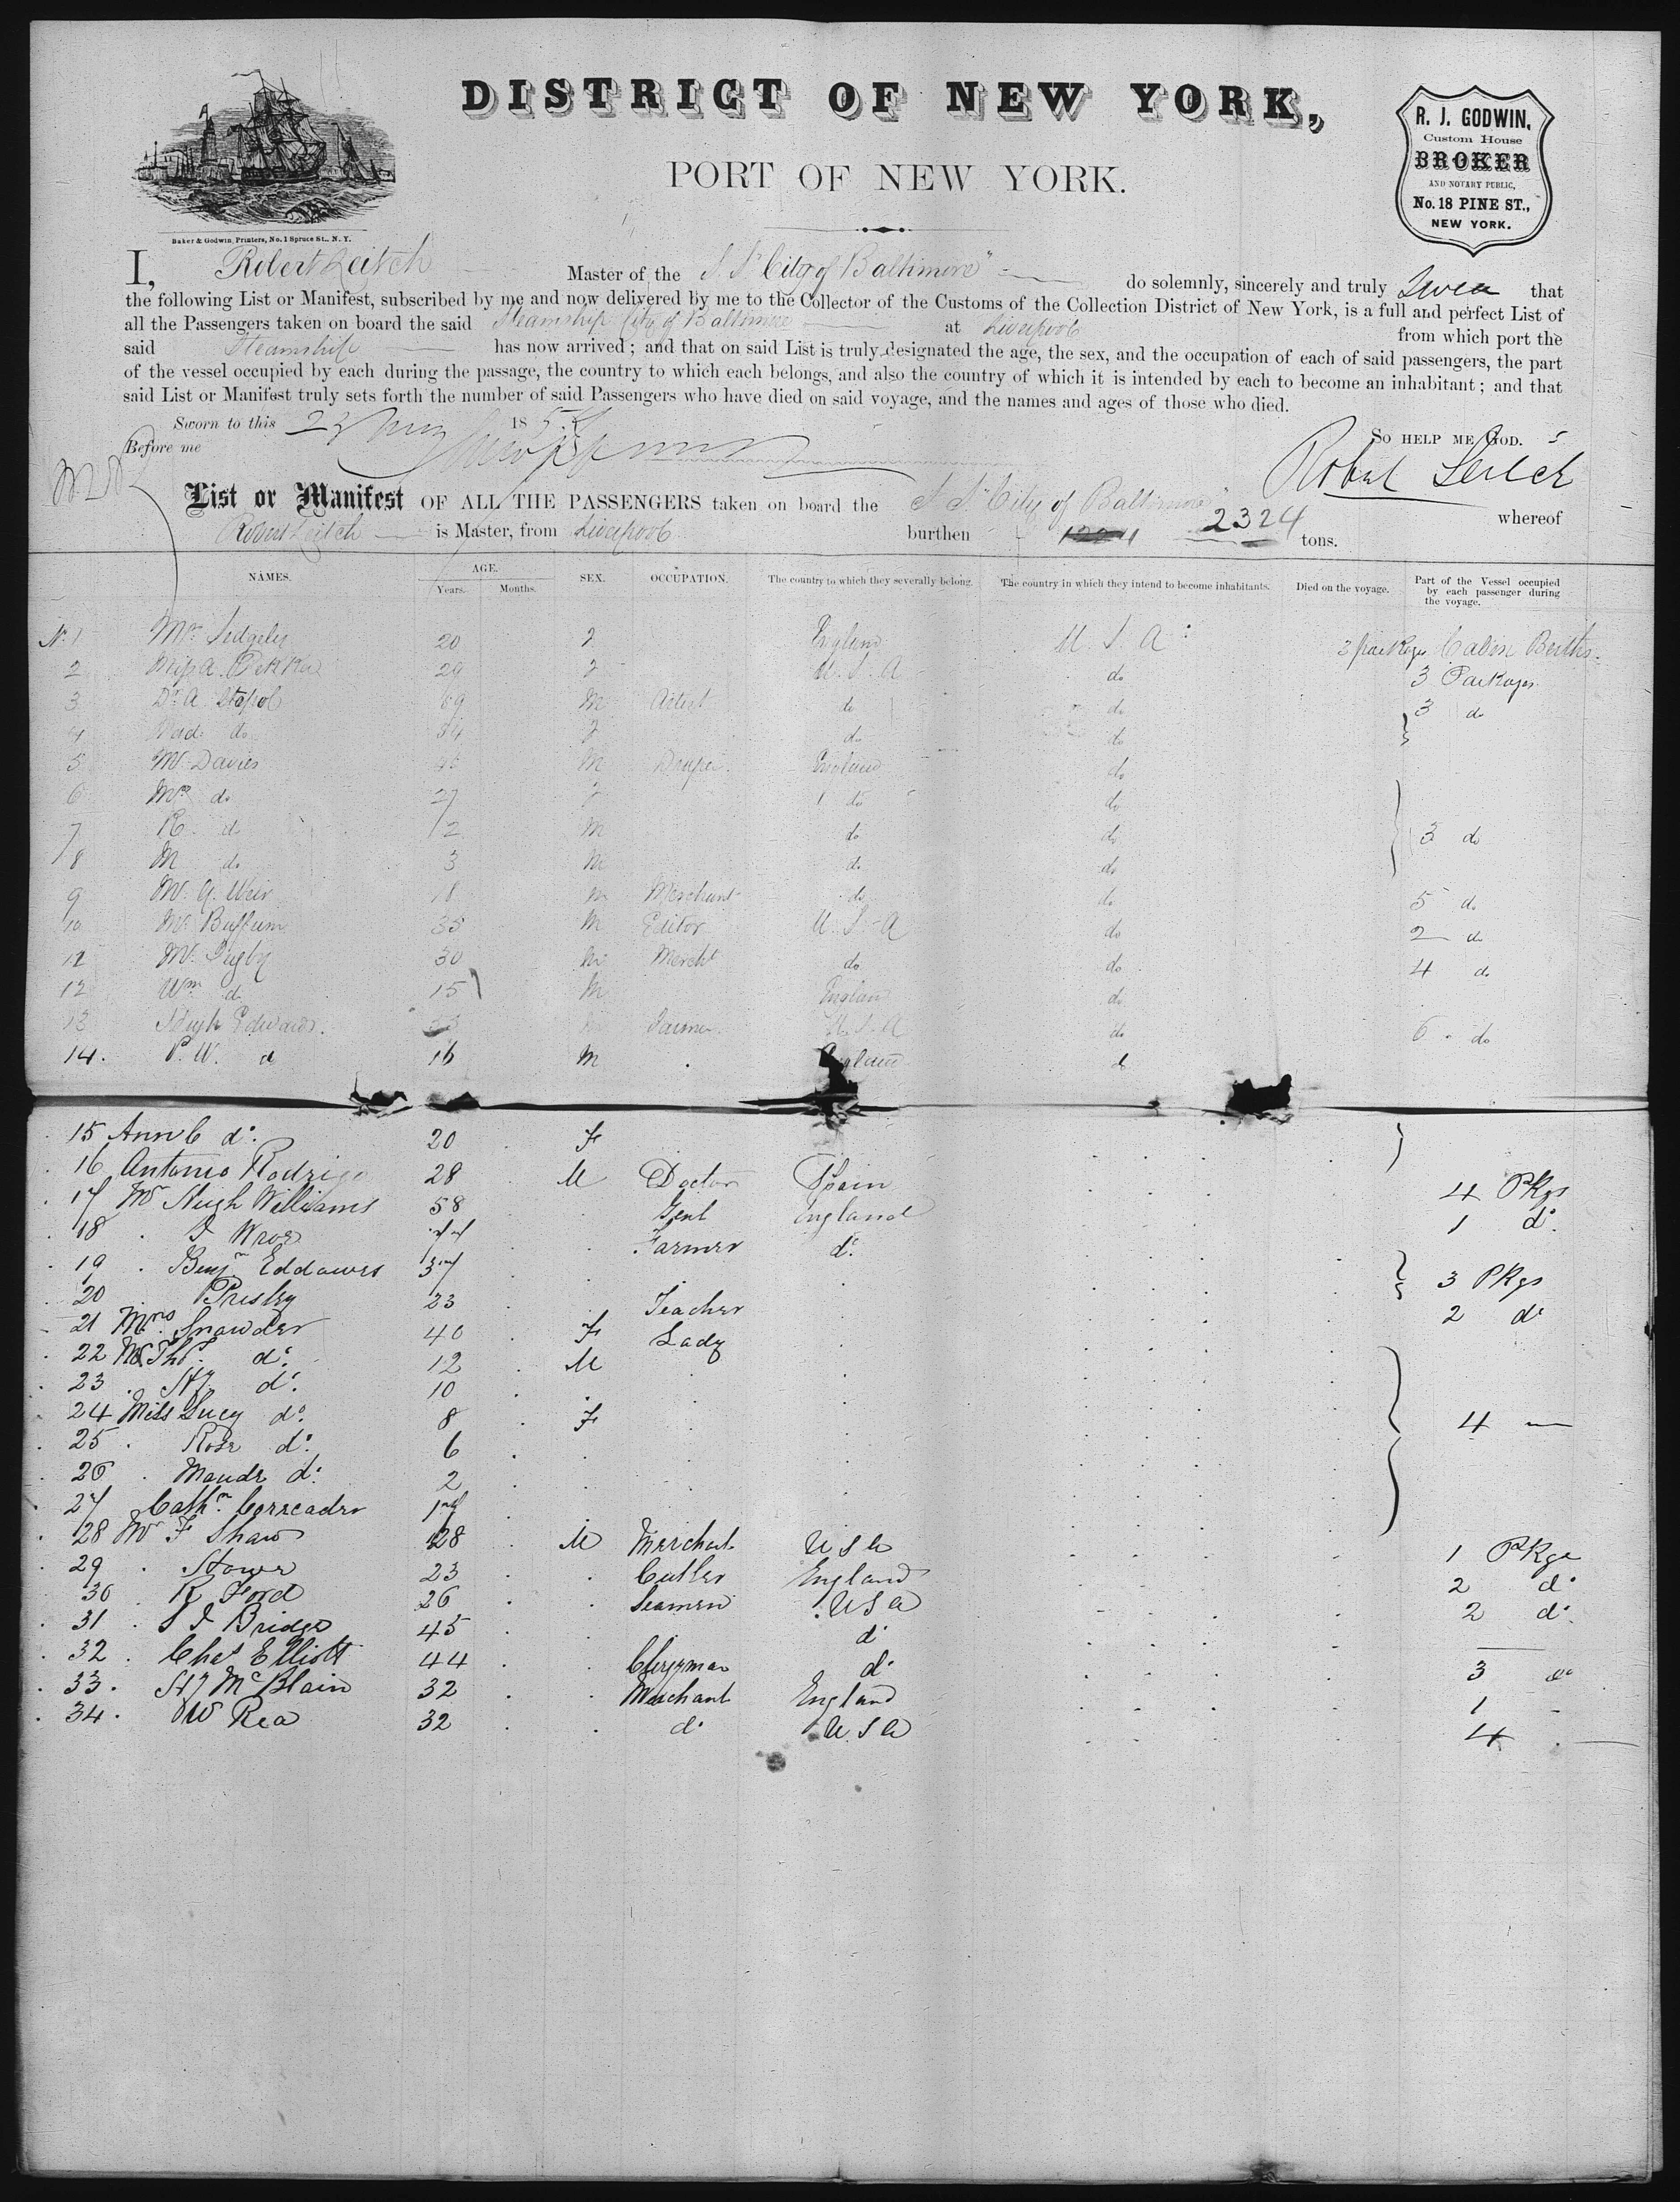 DISTRICT OF NEW YORK,
PORT OF NEW YORK.
R. J. GODWIN,
Custom House
BROKER
AND NOTARY PUBLIC,
No. 18 PINE ST.,
NEW YORK.
Baker & Godwin, Printers, No. 1 Spruce St., N. Y.
I, Robert Leitch Master of the S. S. "City of Baltimore" do solemnly, sincerely and truly Swear that
the following List or Manifest, subscribed by me and now delivered by me to the Collector of the Customs of the Collection District of New York, is a full and perfect List of
all the Passengers taken on board the said Steamship City of Baltimore at Liverpool from which port the
said Steamship has now arrived; and that on said List is truly designated the age, the sex, and the occupation of each of said passengers, the part
of the vessel occupied by each during the passage, the country to which each belongs, and also the country of which it is intended by each to become an inhabitant; and that
said List or Manifest truly sets forth the number of said Passengers who have died on said voyage, and the names and ages of those who died.
Sworn to this 23 185
So HELP ME GOD.
Before me
Robert Leitch
List or Manifest OF ALL THE PASSENGERS taken on board the S. S. "City of Baltimore" whereof
Robert Leitch is Master, from Liverpool burthen 2324 tons.
NAMES. AGE. Years. Months. SEX. OCCUPATION. The country to which they severally belong. The country in which they intend to become inhabitants. Died on the voyage. Part of the Vessel occupied by each passenger during the voyage.
No. 1 20 England U. S. A. 3 packages Cabin Berths.
2 Miss A. 29 U. S. A do 3 Packages
3 Dr. A. 69 M Artist do do 3 do
4 Mad. do 54 do do
5 Mr. Davies M Draper England do
6 Mrs do 27 do do
7 R. do M do do 3 do
8 M do 3 M do do
9 Mr. G. Weir 18 M Merchant do do 5 do
10 Mr. Buffum 35 M Editor U. S. A do 2 do
11 Mr. Digby 30 M Mercht do do 4 do
12 Wm do 15 M England do
13 Hugh Edwards. Farmer. U. S. A do 6 do
14. P. W. do 16 M England d
15 Ann C do. 20 F
16 Antonio Rodrigo 28 M Doctor Spain 4 Pkgs
17 Mr Hugh Williams 58 Gent England 1 do.
18 44 Farmer do.
19 Benjn Eddowes 37 3 Pkgs
20 Presley 23 Teacher 2 do
21 Mrs. Snowder 40 F Lady
22 Mr Thos. do. 12 M
23 Hy. do. 10
24 Miss Lucy do. 8 F 4
25 Rose do. 6
26 Maude do. 2
27 Cathn.
28 Mr F Shaw 28 M Merchant U S A 1 Pkge
29 Stower 23 Cutler England 2 do
30 R Ford 26 Seamen U S A 2 do.
31 S J Bridge 45 do
32 Chas Elliott 44 Clergyman do 3 do
33. Hy McBlain 32 Merchant England 1
34. W Rea 32 do U. S A 4